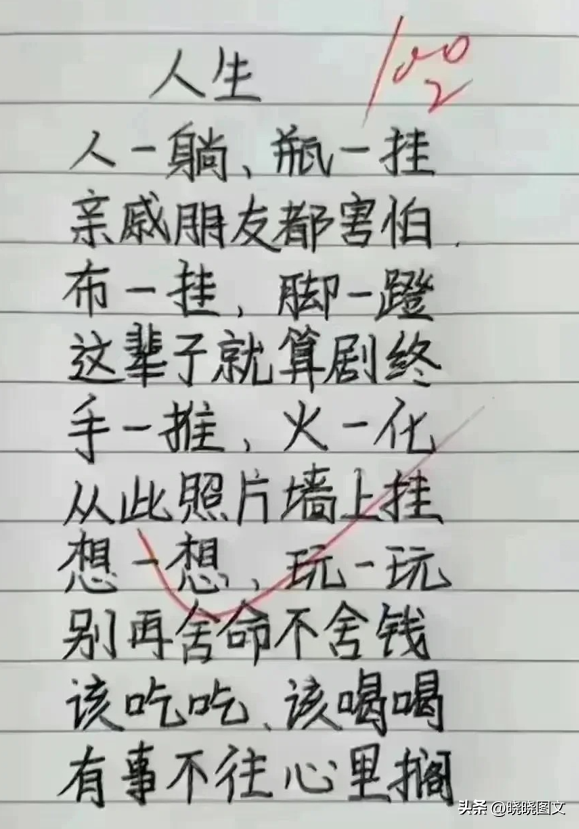 人生
100
2
人一躺、瓶一挂
亲戚朋友都害怕.
布一挂，脚一蹬
这辈子就算剧终
手一推，火一化
从此照片墙上挂
想一想，玩一玩
别再舍命不舍钱
该吃吃、该喝喝
有事不往心里搁
头条 @晓晓图文